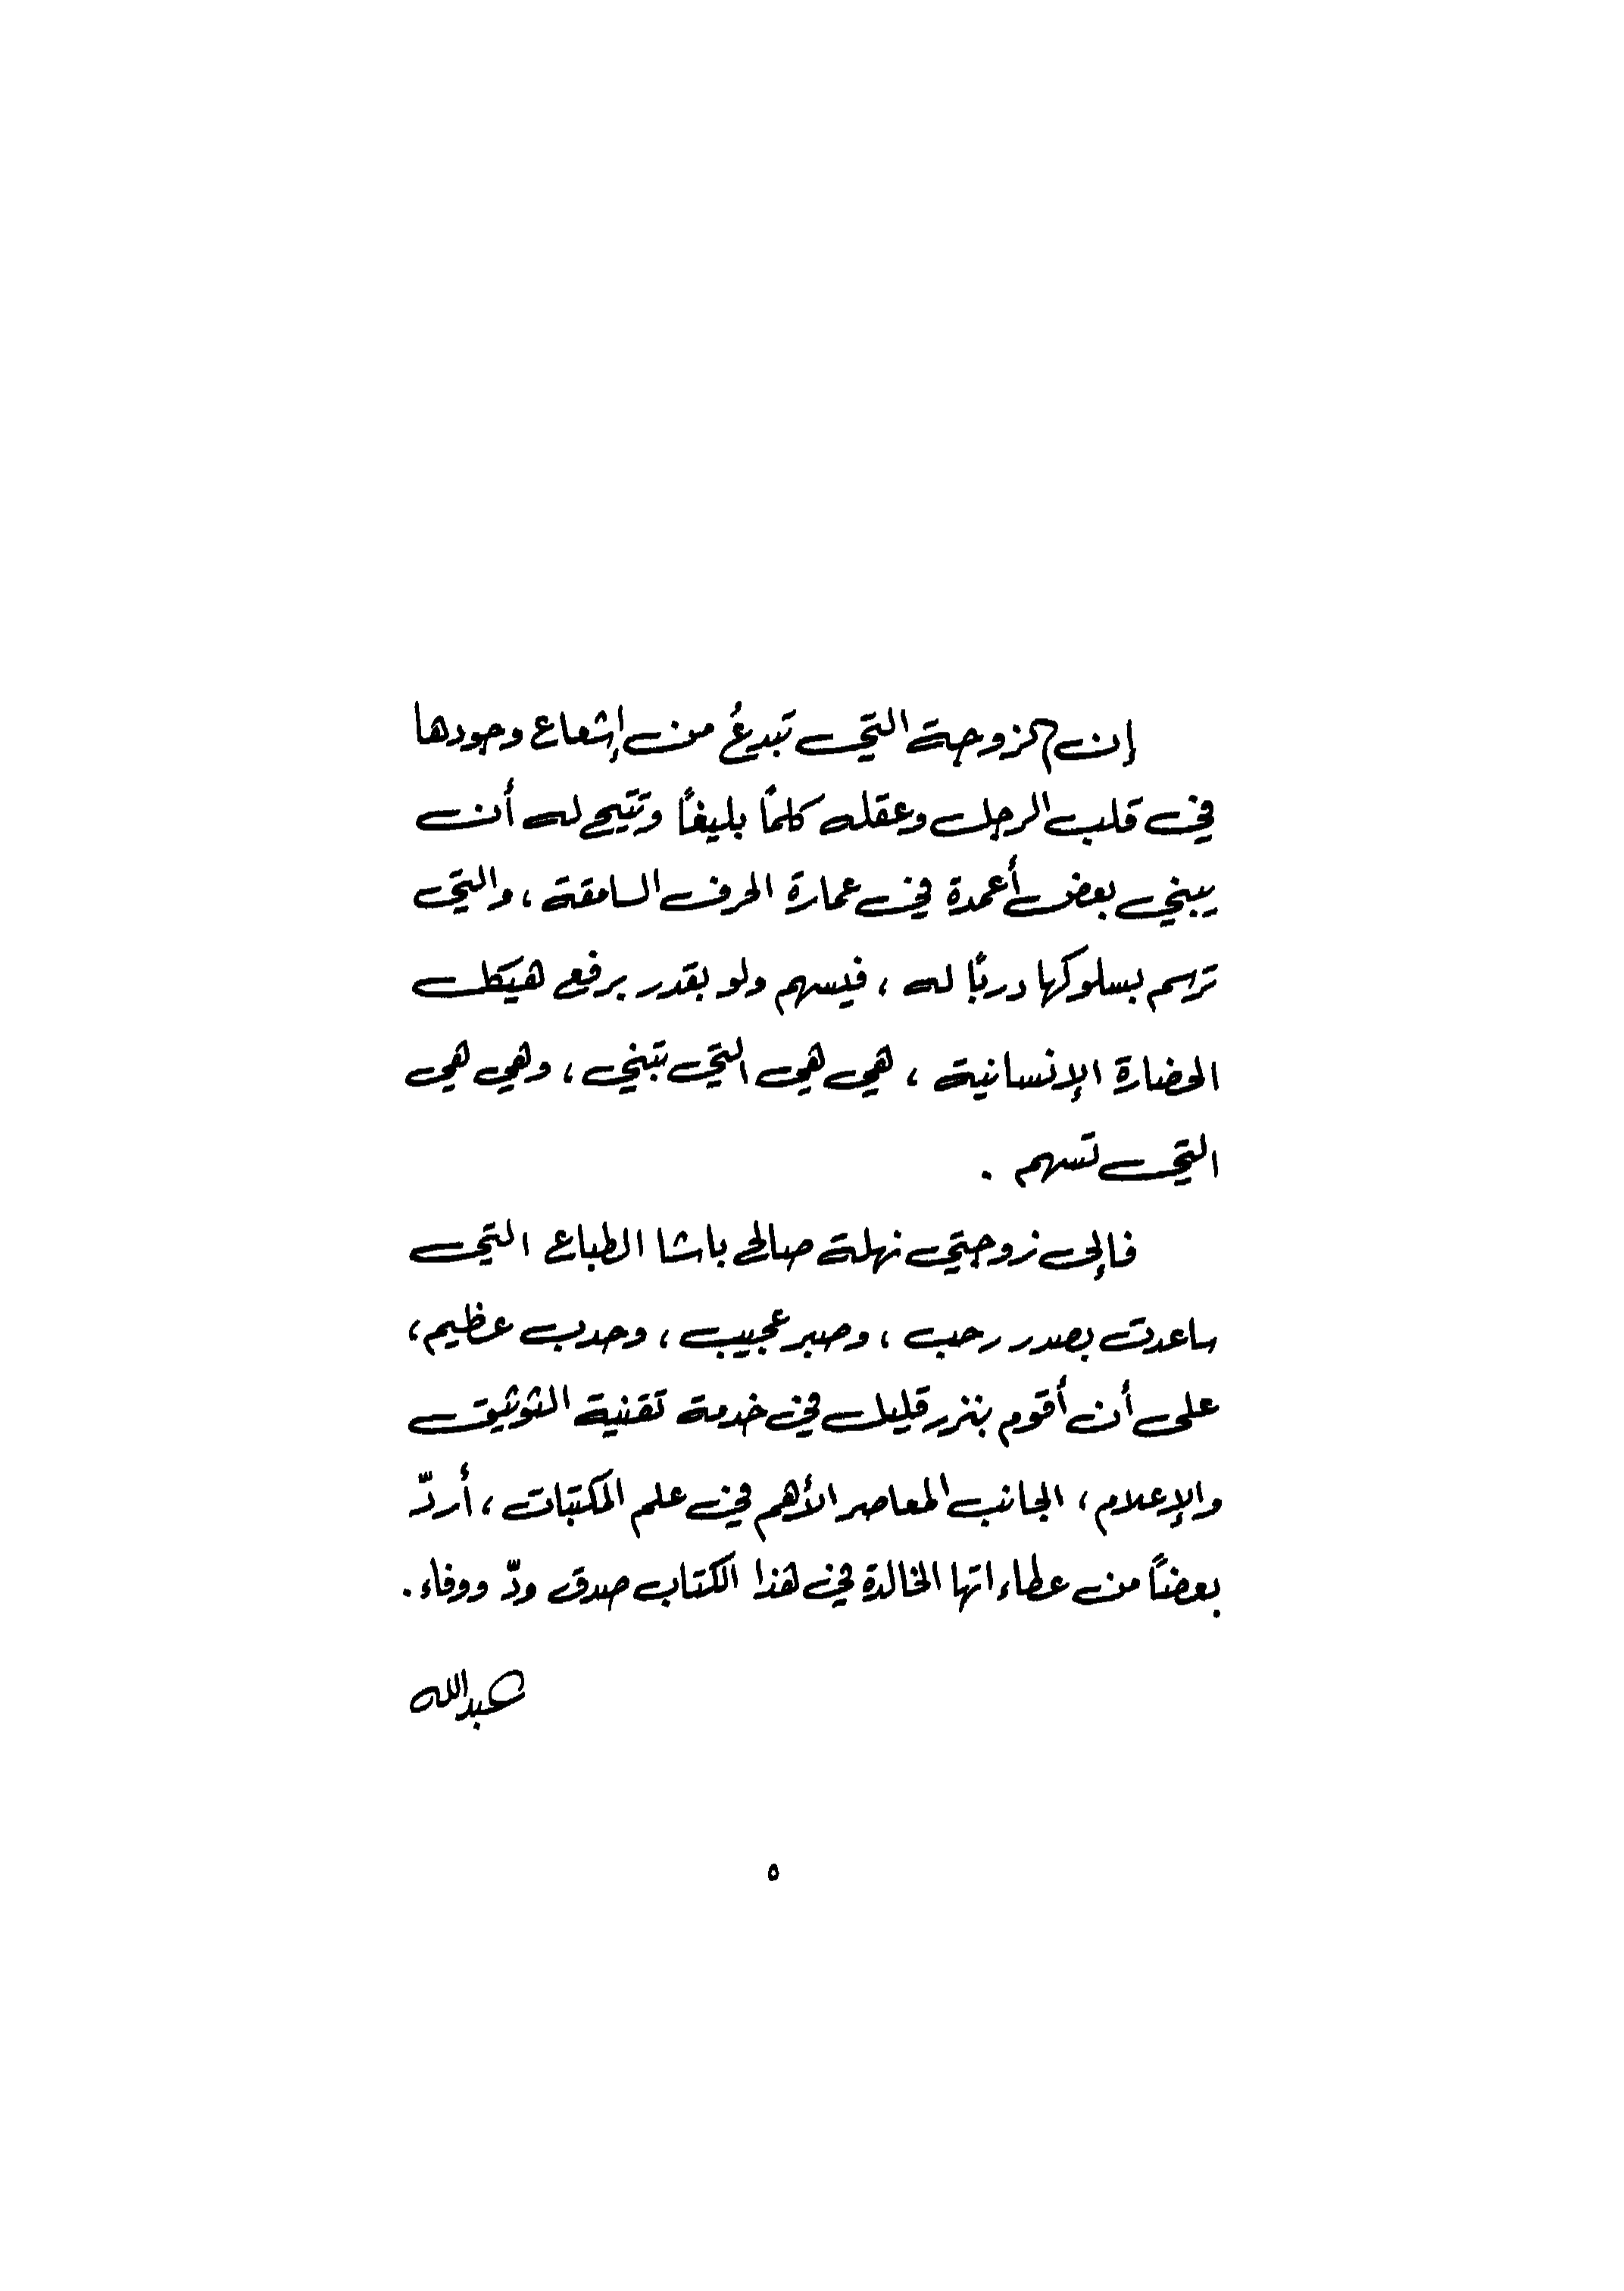 إن الزوجة التي تبدعُ من إشعاع وجودها
في قلب الرجل وعقله كلمًا بليغًا وتتيح له أن
يبني بعض أعمدة في عمارة الحرف السامقة، والتي
ترسم بسلوكها دربًا له، فيسهم ولو بقدر برفع هيكل
الحضارة الإنسانية، هي هي التي تبني، وهي هي
التي تسهم.
فإلى زوجتي نهلة صالح باشا الطباع التي
ساعدت بصدر رحب، وصبر عجيب، وحدب عظيم،
على أن أقوم بنزر قليل في خدمة تقنية التوثيق
والإعلام، الجانب المعاصر الأهم في علم المكتبات، أردّ
بعضًا من عطاءاتها الخالدة في هذا الكتاب صدق ودّ ووفاء.
عبدالله
٥